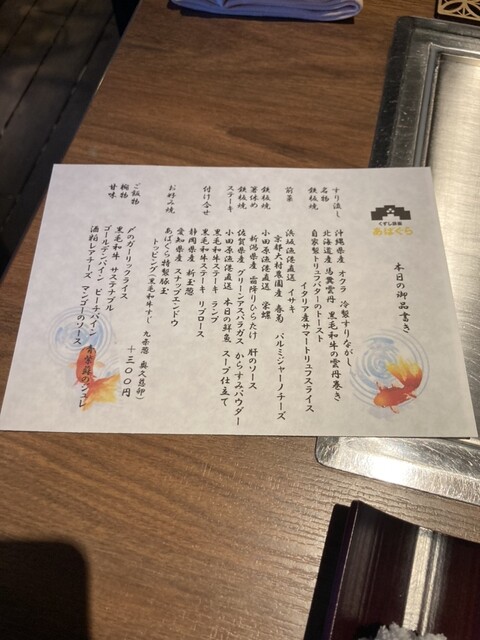 くずし鉄板
あばぐら
本日の御品書き
すり流し 沖縄県産 オクラ 冷製すりながし
名物 北海道産 馬糞雲丹 黒毛和牛の雲丹巻き
鉄板焼 自家製トリュフバターのトースト
イタリア産サマートリュフスライス
前菜 浜坂漁港直送 イサキ
京都大村農園産 春菊 パルミジャーノチーズ
鉄板焼 小田原漁港直送 栄螺 肝のソース
箸休め 新潟県産 霜降りひらたけ
鉄板焼 佐賀県産 グリーンアスパラガス からすみパウダー
小田原漁港直送 本日の鮮魚 スープ仕立て
ステーキ 黒毛和牛ステーキ ランプ
黒毛和牛ステーキ リブロース
付け合せ 静岡県産 新玉葱
愛知県産 スナップエンドウ
お好み焼 あばぐら特製豚玉
トッピング(黒毛和牛すじ 九条葱 奥久慈卵)
+三〇〇円
ご飯物 〆のガーリックライス
椀物 黒毛和牛 サステナブル
甘味 ゴールデンパイン ピーチパイン 青紫蘇のジュレ
酒粕レアチーズ マンゴーのソース